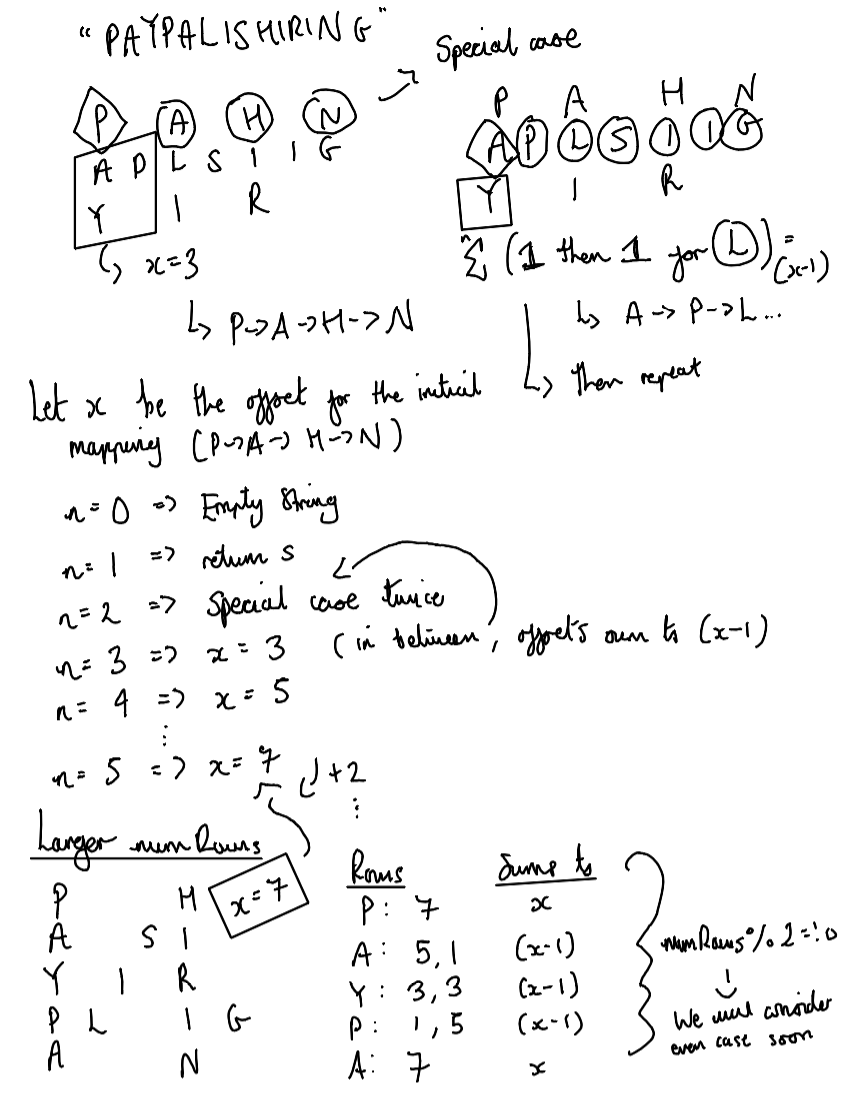 "PAYPALISHIRING"
Special case
P A H N
A P L S I I G
Y I R
x=3
P->A->H->N
P A H N
A P L S I I G
Y I R
n
Σ (1 then 1 for L) = (x-1)
A -> P->L...
then repeat
Let x be the offset for the initial
mapping (P->A-> H->N)
n=0 => Empty String
n=1 => return s
n=2 => Special case twice
n=3 => x=3 (in between, offsets sum to (x-1)
n=4 => x=5
⋮
n=5 => x=7
+2
⋮
Larger numRows
P H
A S I
Y I R
P L I G
A N
x=7
Rows Sums to
P: 7 x
A: 5,1 (x-1)
Y: 3,3 (x-1)
P: 1,5 (x-1)
A: 7 x
numRows % 2 =!0
We must consider
even case soon